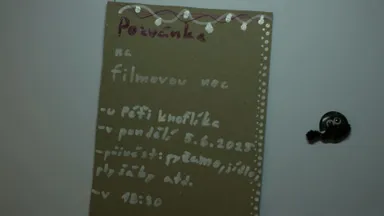 Pozvánka
na
filmovou noc
-u Páti knoflíka
-v pondělí 5.6.2023
-přinést: pyžamo, jídlo,
plyšáky atd.
-v 18:30